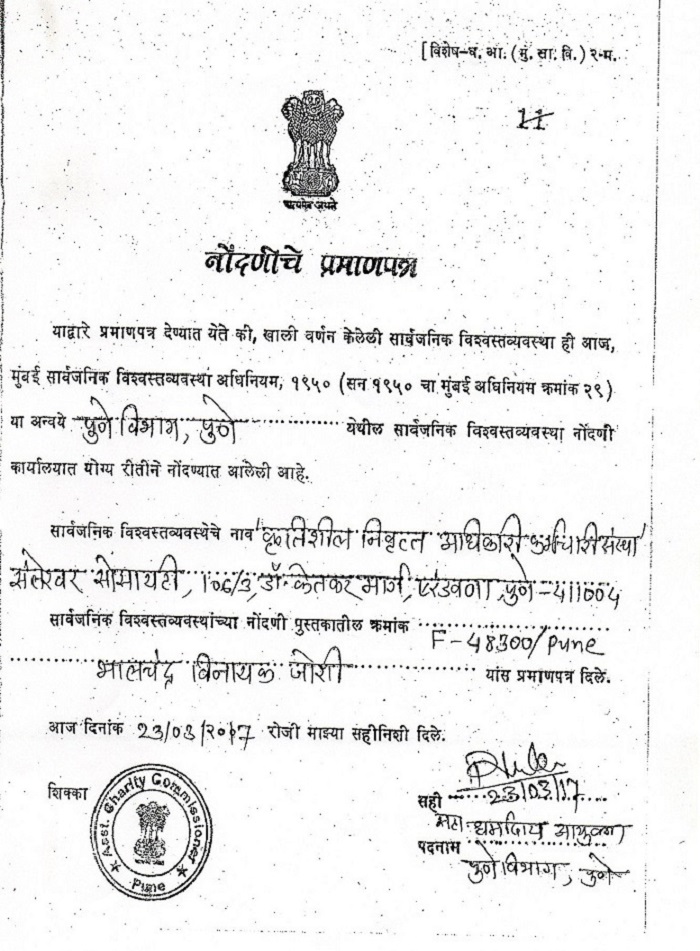 [विशेष-ध. आ. (मुं. सा. वि.) २-म.
11
सत्यमेव जयते
नोंदणीचे प्रमाणपत्र
याद्वारे प्रमाणपत्र देण्यात येते की, खाली वर्णन केलेली सार्वजनिक विश्वस्तव्यवस्था ही आज,
मुंबई सार्वजनिक विश्वस्तव्यवस्था अधिनियम, १९५० (सन १९५० चा मुंबई अधिनियम क्रमांक २९)
या अन्वये पुणे विभाग, पुणे येथील सार्वजनिक विश्वस्तव्यवस्था नोंदणी
कार्यालयात योग्य रीतीने नोंदण्यात आलेली आहे.
सार्वजनिक विश्वस्तव्यवस्थेचे नाव कृतिशील निवृत्त अधिकारी कर्मचारी संस्था
सोसायटी, 106/3, डॉ. केतकर मार्ग, एरंडवना, पुणे-411004
सार्वजनिक विश्वस्तव्यवस्थांच्या नोंदणी पुस्तकातील क्रमांक F-48300/Pune
भालचंद्र विनायक जोशी यांस प्रमाणपत्र दिले.
आज दिनांक 23/03/2017 रोजी माझ्या सहीनिशी दिले.
शिक्का
Asst. Charity Commissioner
Pune
सही 23/03/17
पदनाम धर्मादाय आयुक्त
पुणे विभाग, पुणे